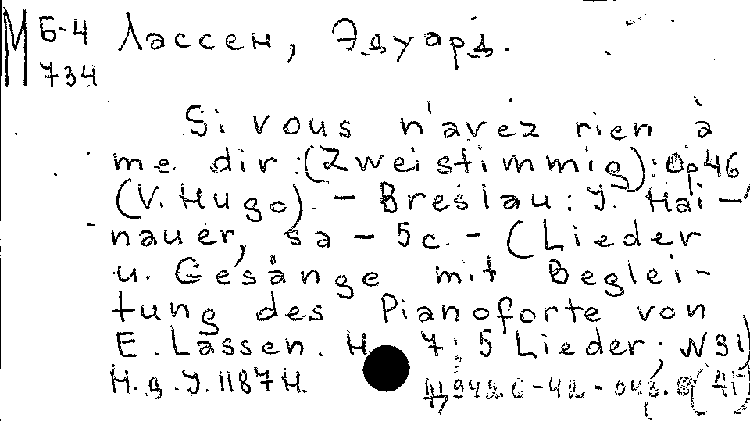 М Б-4 Лассен, Эдуард.
734
Si vous n'avez rien à
me dir:(Zweistimmig):Op46
(V. Hugo). - Breslau: J. Hai-
nauer, sa - 5c. - (Lieder
u. Gesänge mit Beglei-
tung des Pianoforte von
E. Lassen. H. 7: 5 Lieder; N3)
Н.д.J.1187Н.